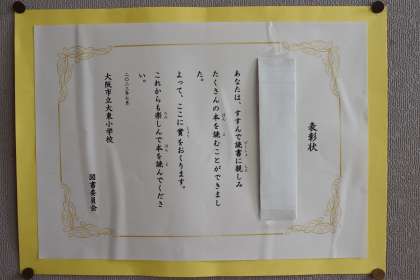 表彰状
あなたは、すすんで読書に親しみ
たくさんの本を読むことができまし
た。
よって、ここに賞をおくります。
これからも楽しんで本を読んでくださ
い。
大阪市立大東小学校
図書委員会